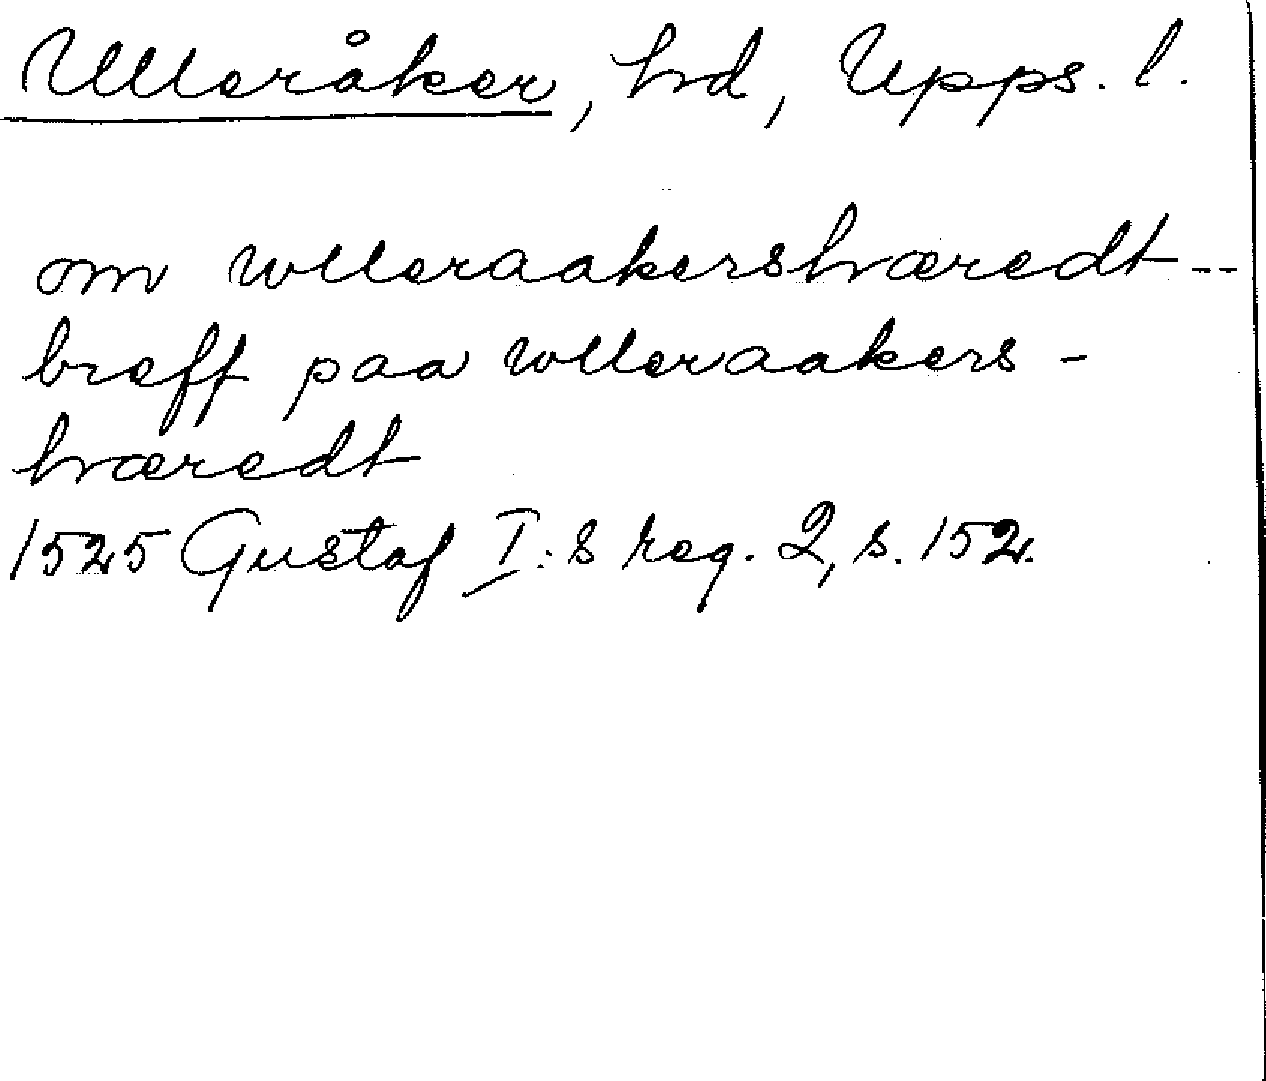 Ulleråker, hd, Upps. l.
om wlleraakershæredt --
breff paa wlleraakers -
hæredt
1525 Gustaf I:s reg. 2, s. 152.